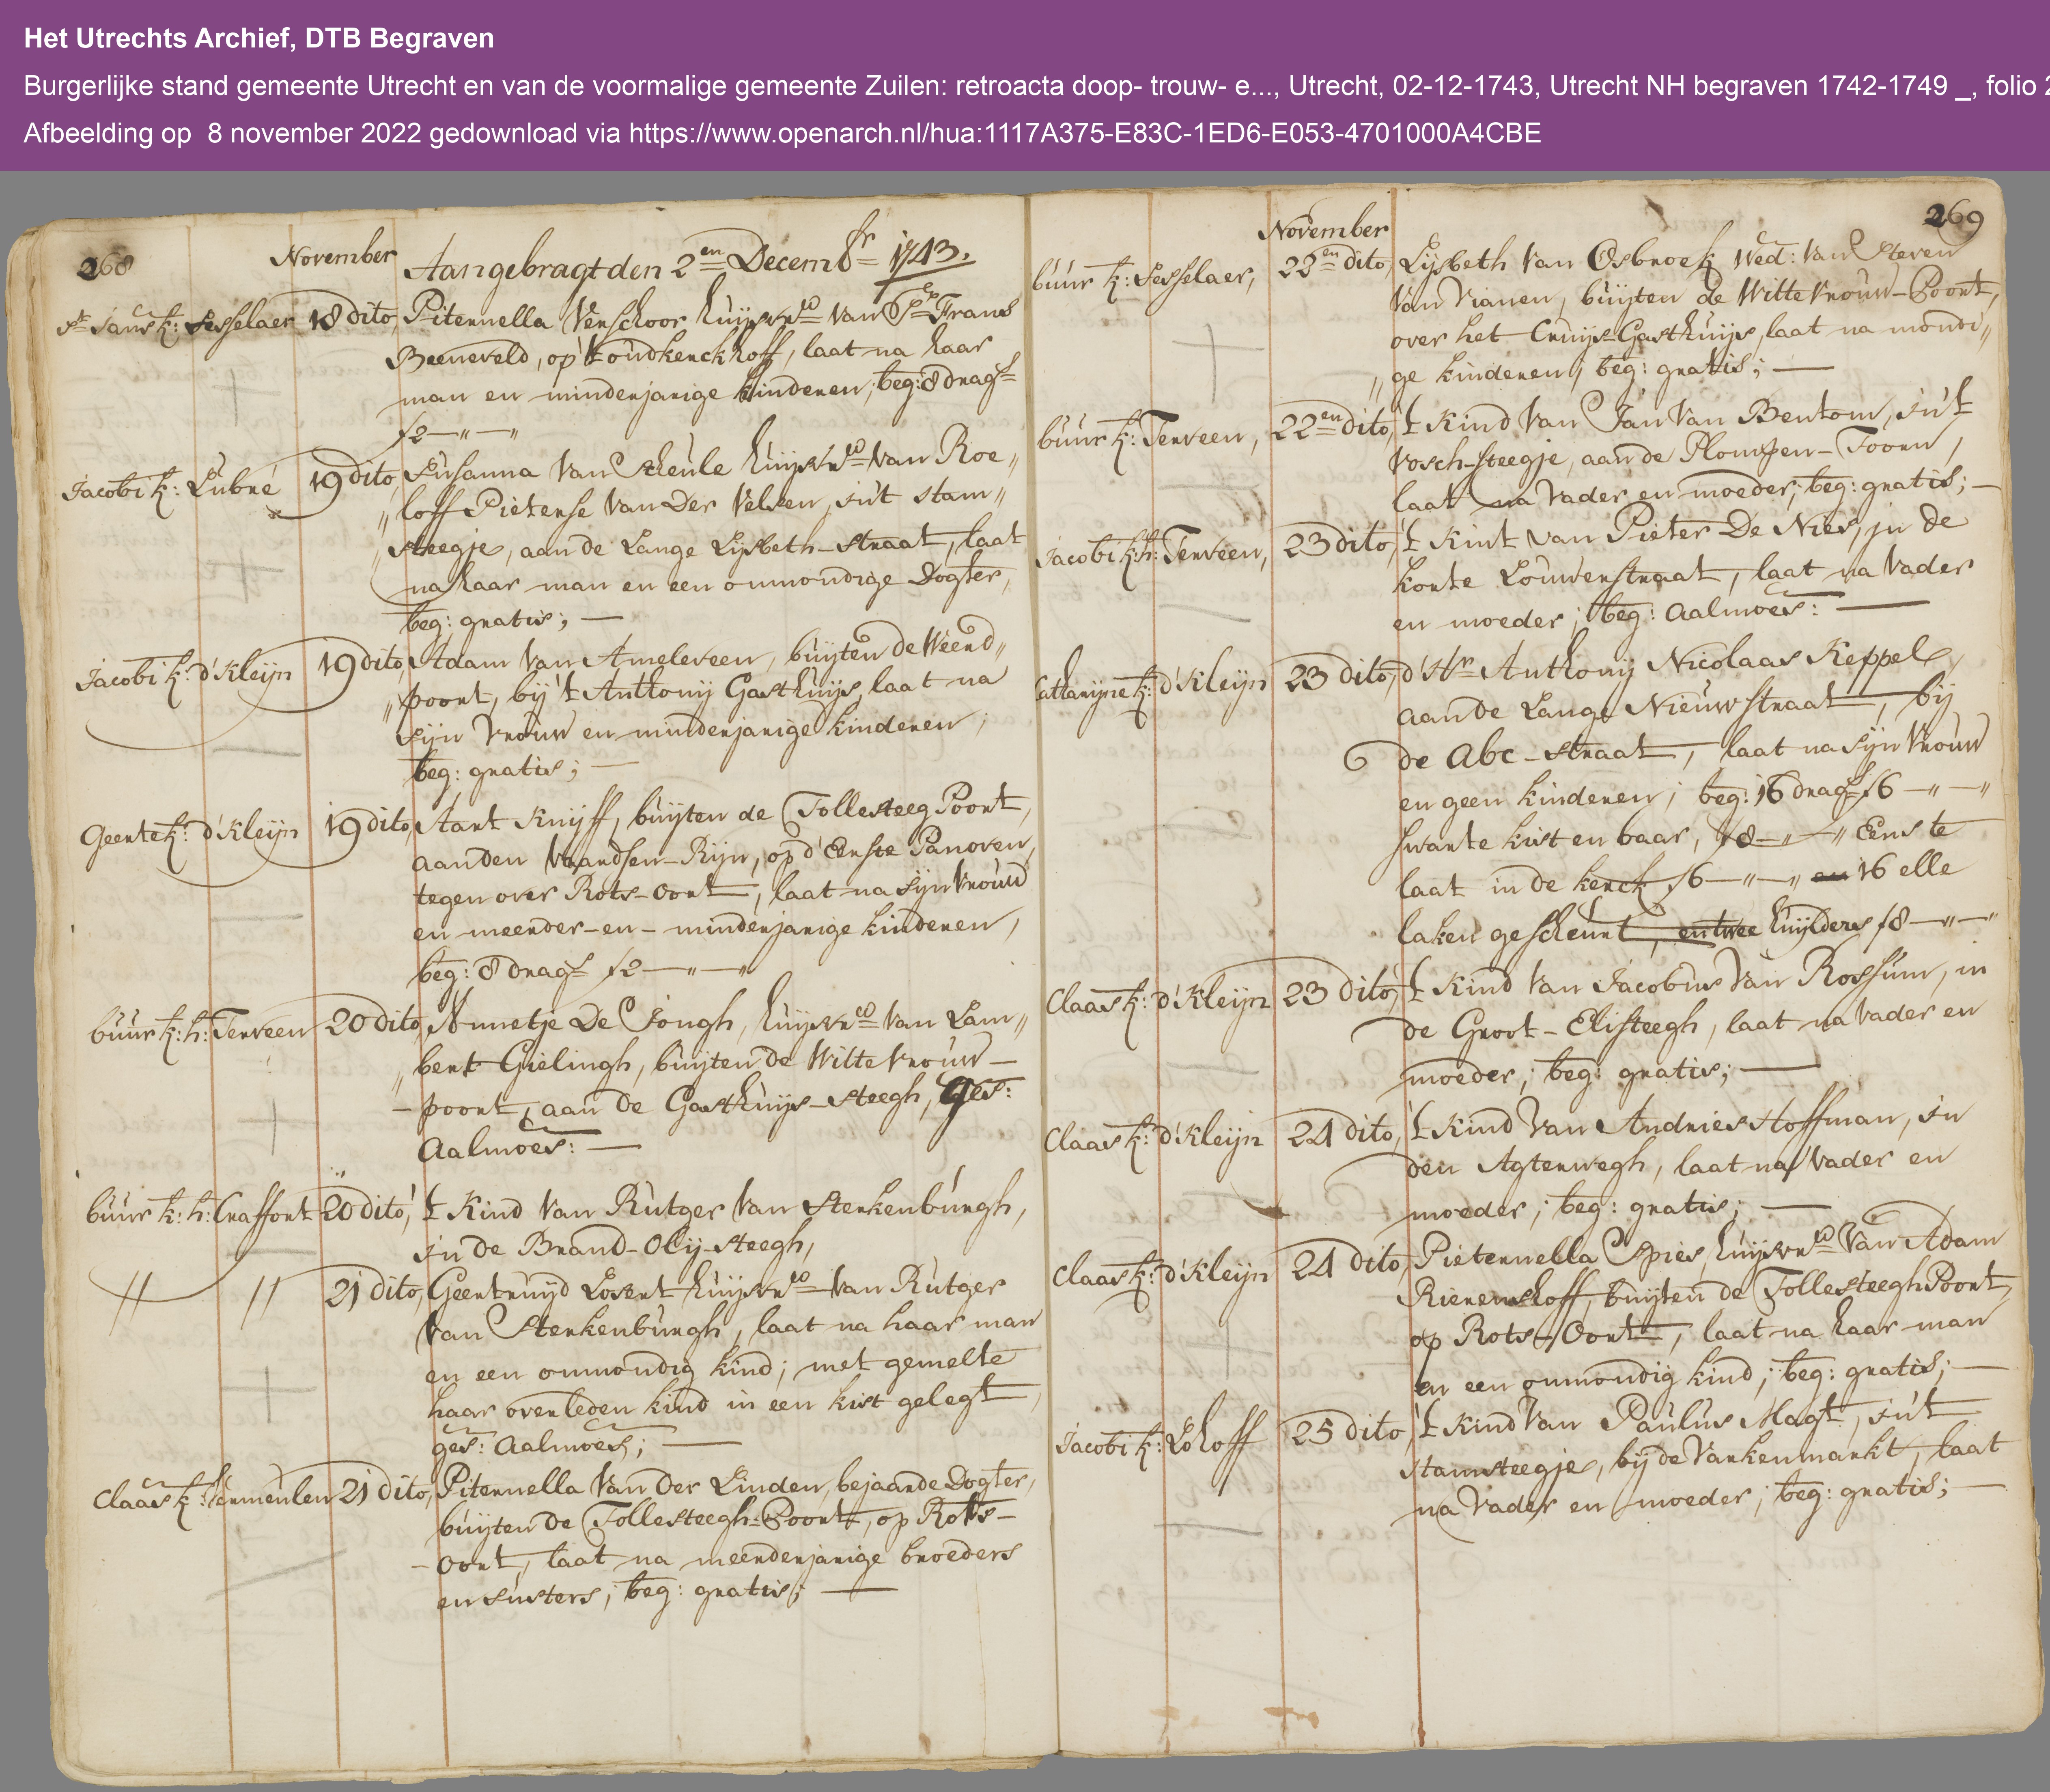 Het Utrechts Archief, DTB Begraven
Burgerlijke stand gemeente Utrecht en van de voormalige gemeente Zuilen: retroacta doop- trouw- e..., Utrecht, 02-12-1743, Utrecht NH begraven 1742-1749 _, folio 2
Afbeelding op 8 november 2022 gedownload via https://www.openarch.nl/hua:1117A375-E83C-1ED6-E053-4701000A4CBE
268
November Aangebragt den 2en Decembr 1743.
St Jans k: Sesselaer 18 dito, Piternella Verschoor huijsvro van Frans
Beeneveld, op 't oudkerckhoff, laat na haar
man en minderjarige kinderen, beg: 8 drags
f2—"—"
Jacobi k: Lubné 19 dito, Susanna van Scheule huijsvro van Roe"
"loff Pieterse van Der Velsen, in't stam"
"steegje, aan de Lange Lijsbeth-straat, laat
na haar man en een onmondige Dogter,
beg: gratis; —
Jacobi k: d'Kleijn 19 dito, Adam van Ameleveen, buijten de Weerd"
"poort, bij 't Anthonij Gasthuijs, laat na
sijn vrouw en minderjarige kinderen;
beg: gratis; —
Geerte k: d'Kleijn 19 dito, Aart Knijff, buijten de Tollesteeg Poort,
aan den Vaardsen-Rijn, op d'Eerste Panoven,
tegen over Rots-oort, laat na sijn vrouw
en meerder-en-minderjarige kinderen,
beg: 8 drags f2—"—"
buur k: h: Terveen 20 dito, Annetje De Jongh, huijsvro van Lam"
"bert Gielingh, buijten de Wittevrouw—
—poort, aan de Gasthuijs-steegh, ges:
Aalmoes: —
buur k: h: Craffort 20 dito, 't Kind van Rutger van Sterkenburgh,
in de Brand-Olij-steegh,
" " 21 dito, Geertruijd Losert huijsvro van Rutger
van Sterkenburgh, laat na haar man
en een onmondig kind; met gemelte
haar overleden kind in een kist gelegt,
ges: Aalmoes; —
Claas k: Vermeulen 21 dito, Piternella van der Linden, bejaarde Dogter,
buijten de Tollesteegh-Poort, op Rots—
—oort, laat na meerderjarige broeders
en susters; beg: gratis; —
269
November
buur k: Sesselaer, 22en dito, Lijsbeth van Osbroek Wed: van Steven
van Vianen, buijten de Wittevrouw-Poort,
over het Cruijs-Gasthuijs, laat na mondi"
"ge kinderen, beg: gratis; —
buur k: Terveen, 22en dito, 't Kind van Jan van Bentom, in't
Vosch-steegje, aan de Plompen-Toorn,
laat na vader en moeder, beg: gratis; —
Jacobi k: h: Terveen, 23 dito, 't Kint van Pieter De Nies, in de
korte Louwerstraat, laat na vader
en moeder; beg: Aalmoes: —
Catharijne k: d'Kleijn 23 dito, d'Hr Anthonij Nicolaas Keppel,
aan de Lange Nieuwstraat, bij
de Abc-straat, laat na sijn vrouw
en geen kinderen; beg: 16 drags f6—"—"
swarte kist en baar, f8—"—" Eerste
laat in de kerck f6—"—" en 16 elle
laken gescheurt, en twee huijlders f8—"—"
Claas k: d'Kleijn 23 dito, 't Kind van Jacobus van Rossum, in
de Groot-Elisteegh, laat na vader en
moeder; beg: gratis; —
Claas k: d'Kleijn 24 dito, 't Kind van Andries Hoffman, in
den Agterwegh, laat na vader en
moeder; beg: gratis; —
Claas k: d'Kleijn 24 dito, Pieternella Spies, huijsvro van Adam
Rienershoff, buijten de Tollesteegh Poort,
op Rots-Oort, laat na haar man
en een onmondig kind; beg: gratis; —
Jacobi k: Lohoff 25 dito, 't Kind van Paulus Magt, in't
stamsteegje, bij de Varkenmarkt, laat
na vader en moeder; beg: gratis; —